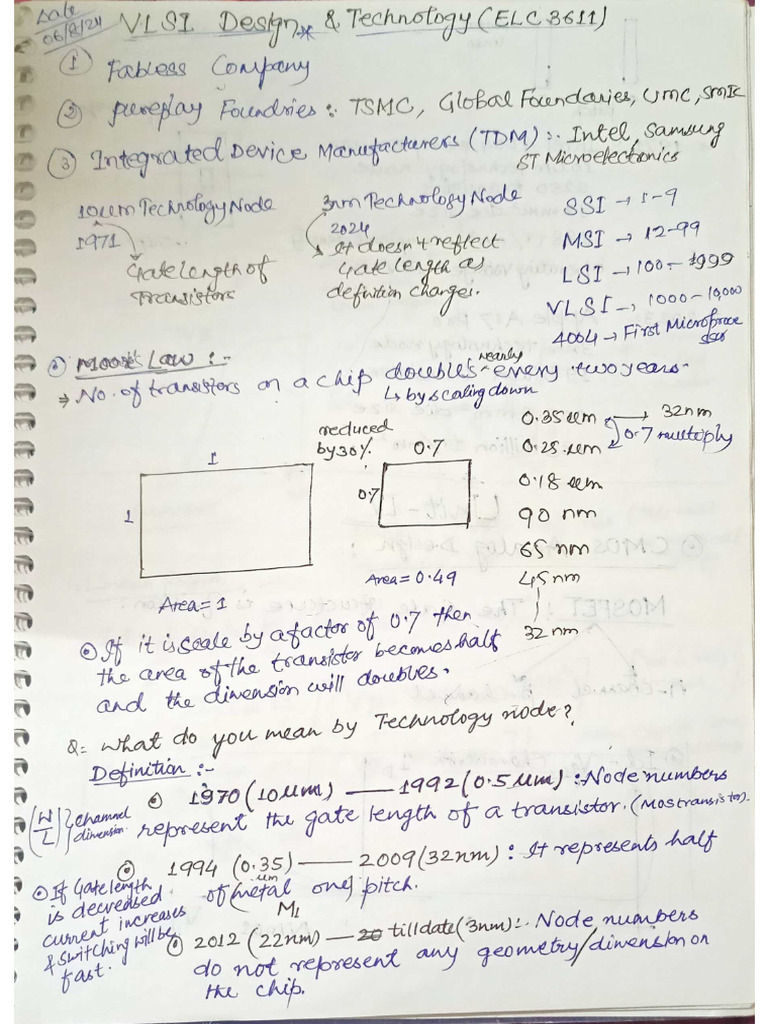 Date
06/8/24
VLSI Design & Technology (ELC 3611)
① Fabless Company
② Pureplay Foundries :- TSMC, Global Foundaries, UMC, SMIC
③ Integrated Device Manufacturers (IDM) :- Intel, Samsung
ST Microelectronics
10um Technology Node
1971
Gate length of
Transistors
3nm Technology Node
2024
It doesn't reflect
Gate length as
definition changes.
SSI → 1-9
MSI → 12-99
LSI → 100-1999
VLSI → 1000-10,000
4004 → First Microproce
ssor
Moore's Law :-
⇒ No. of transistors on a chip doubles nearly every two years.
↳ by scaling down
1
1
Area = 1
reduced
by 30%.
0.7
0.7
Area = 0.49
0.35um → 32nm
0.7 multiply
0.25um
0.18um
90 nm
65 nm
45 nm
32 nm
If it is scale by a factor of 0.7 then
the area of the transistor becomes half
and the dimension will doubles.
Q= What do you mean by Technology node?
Definition :-
1970 (10um) — 1992 (0.5um) : Node numbers
represent the gate length of a transistor. (Mos transistor).
[W/L] channel
dimension
1994 (0.35) — 2009 (32nm) : It represents half
um
of (metal one) pitch.
M1
If Gate length
is decreased
current increases
& switching will be
fast.
2012 (22nm) — till date (3nm) :- Node numbers
do not represent any geometry/dimension on
the chip.